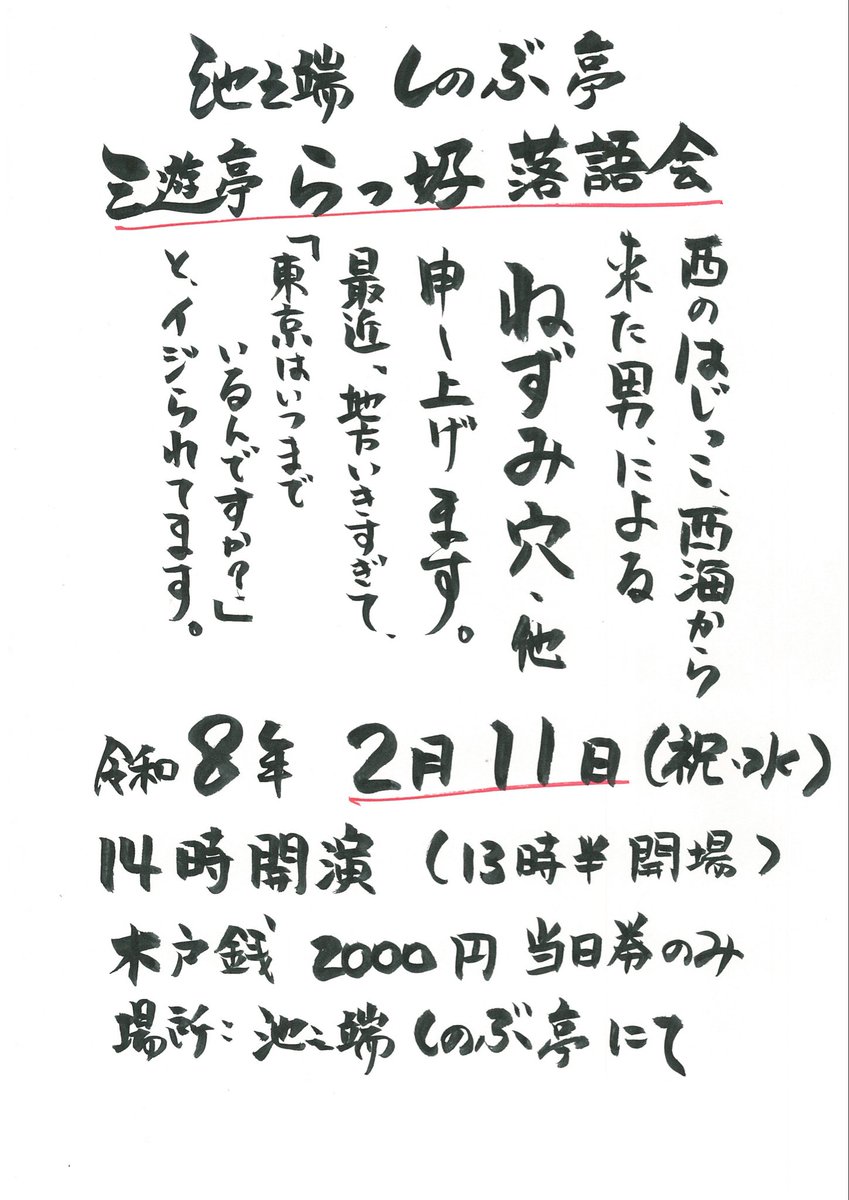 池之端 しのぶ亭
三遊亭 らっ好 落語会
西のはじっこ、西海から
来た男、による
ねずみ穴、他
申し上げます。
最近、地方いきすぎて、
「東京はいつまで
いるんですか?」
と、イジられてます。
令和8年 2月11日(祝・水)
14時開演 (13時半開場)
木戸銭 2000円 当日券のみ
場所:池之端しのぶ亭にて